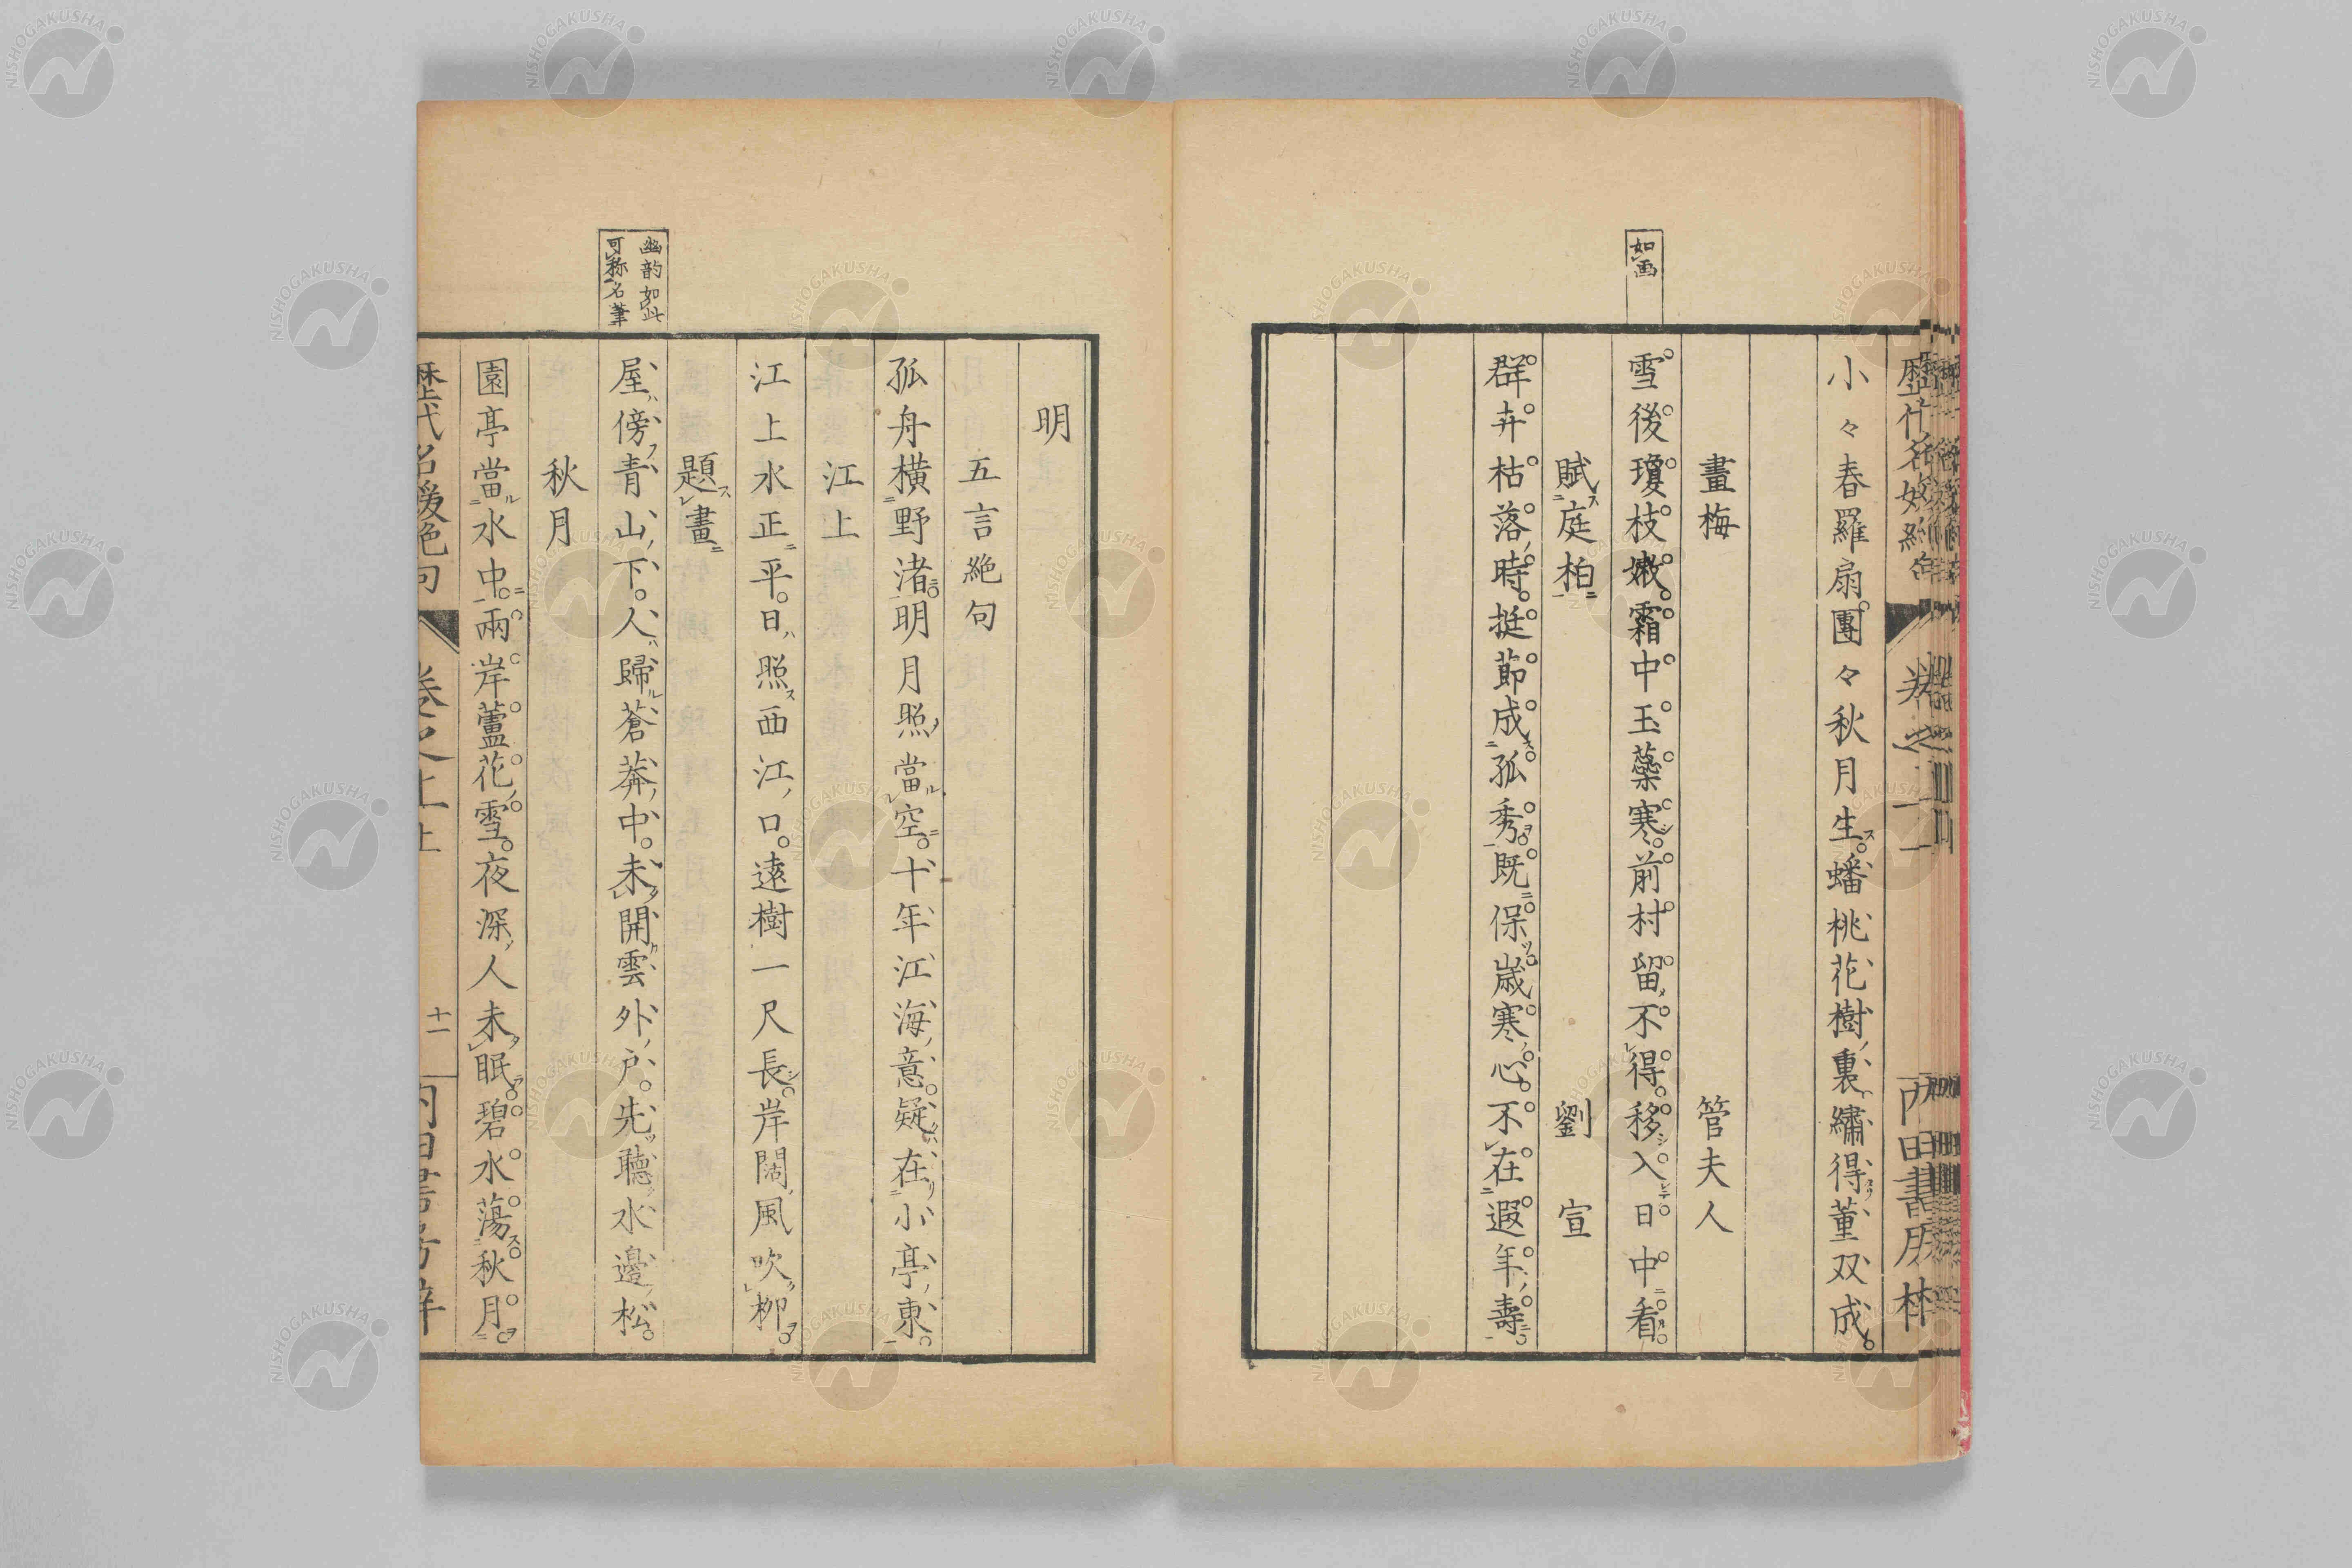 小々春羅扇團々秋月生蟠桃花樹裏繡得董双成
畫梅 管夫人
如画
雪後瓊枝嫩霜中玉蘂寒前村留不得移入日中看
賦庭柏 劉宣
群卉枯落時挺節成孤秀既保歳寒心不在遐年壽
明
五言絶句
孤舟橫野渚明月照當空十年江海意疑在小亭東
江上
江上水正平日照西江口遠樹一尺長岸闊風吹柳
題畫
幽韵如此
可称名筆
屋傍青山下人歸蒼莽中未開雲外戶先聽水邊松
秋月
園亭當水中兩岸蘆花雪夜深人未眠碧水蕩秋月
歷代名媛絶句 卷之上 上 十一
NISHOGAKUSHA